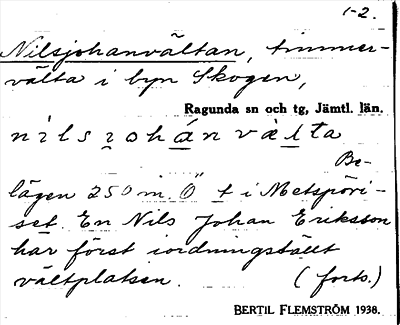 1-2.
Nilsjohanvältan, timmer-
välta i byn Skogen,
Ragunda sn och tg, Jämtl. län.
nilsjohán vàlta
Be-
lägen 250 m. Ö t i Metspöri-
set. En Nils Johan Eriksson
har först iordningställt
vältplatsen. (forts.)
BERTIL FLEMSTRÖM 1938.